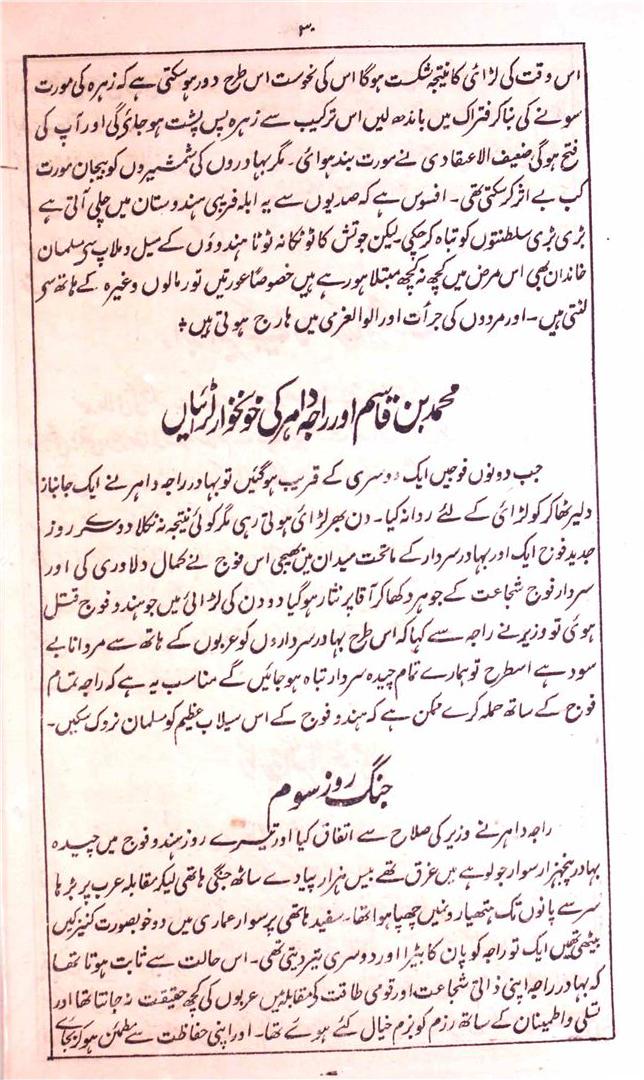 ۳۰
اس وقت کی لڑائی کا نتیجہ شکست ہوگا اس کی نحوست اس طرح دور ہوسکتی ہے کہ زہرہ کی مورت
سونے کی بناکر فتراک میں باندھ لیں اس ترکیب سے زہرہ پس پشت ہوجائیگی اور آپ کی
فتح ہوگی ضعیف الاعتقادی نے مورت بندھوائی۔ مگر بہادروں کی شمشیروں کو بیجان مورت
کب بے اثر کرسکتی تھی۔ افسوس ہے کہ صدیوں سے یہ ابلہ فریبی ہندوستان میں چلی آتی ہے
بڑی بڑی سلطنتوں کو تباہ کرچکی۔ لیکن جوتش کا ٹوٹکا نہ ٹوٹا ہندوؤں کے میل و ملاپ سی مسلمان
خاندان بھی اس مرض میں کچھ نہ کچھ مبتلا ہورہے ہیں خصوصاً عورتیں تو رمالوں وغیرہ کے ہاتھ سی
لٹتی ہیں۔ اور مردوں کی جرأت اور الوالعزمی میں ہارج ہوتی ہیں
محمد بن قاسم اور راجہ داہر کی خونخوار لڑائیاں
جب دونوں فوجیں ایک دوسری کے قریب ہوگئیں تو بہادر راجہ داہر نے ایک جانباز
دلیر ٹھاکر کو لڑائی کے لئے روانہ کیا۔ دن بھر لڑائی ہوتی رہی مگر کوئی نتیجہ نہ نکلا دوسرے روز
جدید فوج ایک اور بہادر سردار کے ماتحت میدان میں بھیجی اس فوج نے کمال دلاوری کی اور
سردار فوج شجاعت کے جوہر دکھاکر آقا پر نثار ہوگیا دو دن کی لڑائی میں جو ہندو فوج قتل
ہوئی تو وزیر نے راجہ سے کہا کہ اس طرح بہادر سرداروں کو عربوں کے ہاتھ سے مروانا بے
سود ہے اسطرح تو ہمارے تمام چیدہ سردار تباہ ہوجائیں گے مناسب یہ ہے کہ راجہ تمام
فوج کے ساتھ حملہ کرے ممکن ہے کہ ہندو فوج کے اس سیلاب عظیم کو مسلمان نہ روک سکیں۔
جنگ روز سوم
راجہ داہر نے وزیر کی صلاح سے اتفاق کیا اور تیسرے روز ہندو فوج میں چیدہ
بہادر پنچہزار سوار جو لوہے میں غرق تھے بیس ہزار پیادے ساٹھ جنگی ہاتھی لیکر مقابلہ عرب پر بڑھا
سر سے پانوں تک ہتھیاروں میں چھپا ہوا تھا۔ سفید ہاتھی پر سوار عماری میں دو خوبصورت کنیزکیں
بیٹھی تھیں ایک تو راجہ کو پان کا بیڑا اور دوسری تیر دیتی تھی۔ اس حالت سے ثابت ہوتا تھا
کہ بہادر راجہ اپنی ذاتی شجاعت اور قومی طاقت کے مقابلہ میں عربوں کی کچھ حقیقت نہ جانتا تھا اور
تسلی و اطمینان کے ساتھ رزم کو بزم خیال کئے ہوئے تھا۔ اور اپنی حفاظت سے مطمئن ہوکر بجائے